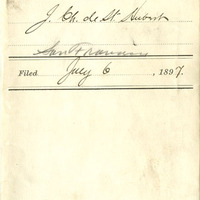 J. Ch. de St. Hubert
San Francisco
Filed July 6, 1897.